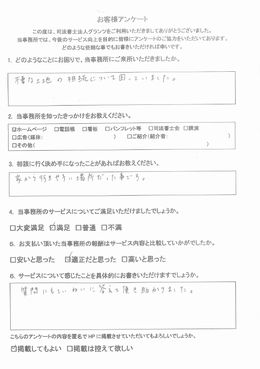 お客様アンケート
この度は、司法書士法人グランツをご利用いただきましてありがとうございました。
当事務所では、今後のサービス向上を目的に皆様にアンケートのご協力をいただいております。
どのような些細な事でもお書きいただければ幸いです。
1. どのようなことにお困りで、当事務所にご来所いただきましたか。
な土地の相続について困っていました。
2. 当事務所を知ったきっかけをお教えください。
☑ホームページ □電話帳 □看板 □パンフレット等 □司法書士会 □講演
□広告(媒体: ) □ご紹介(紹介者: )
□その他( )
3. 相談に行く決め手になったことがあればお教えください。
家から行きやすい場所だった事です。
4. 当事務所のサービスについてご満足いただけましたでしょうか。
□大変満足 ☑満足 □普通 □不満
5. お支払い頂いた当事務所の報酬はサービス内容と比較していかがでしたか。
□安いと思った ☑適正だと思った □高いと思った
6. サービスについて感じたことを具体的にお書きいただけますでしょうか。
質問にもていねいに答えて頂き助かりました。
こちらのアンケートの内容を匿名でHPに掲載させていただいてもよろしいでしょうか。
☑掲載してもよい □掲載は控えて欲しい